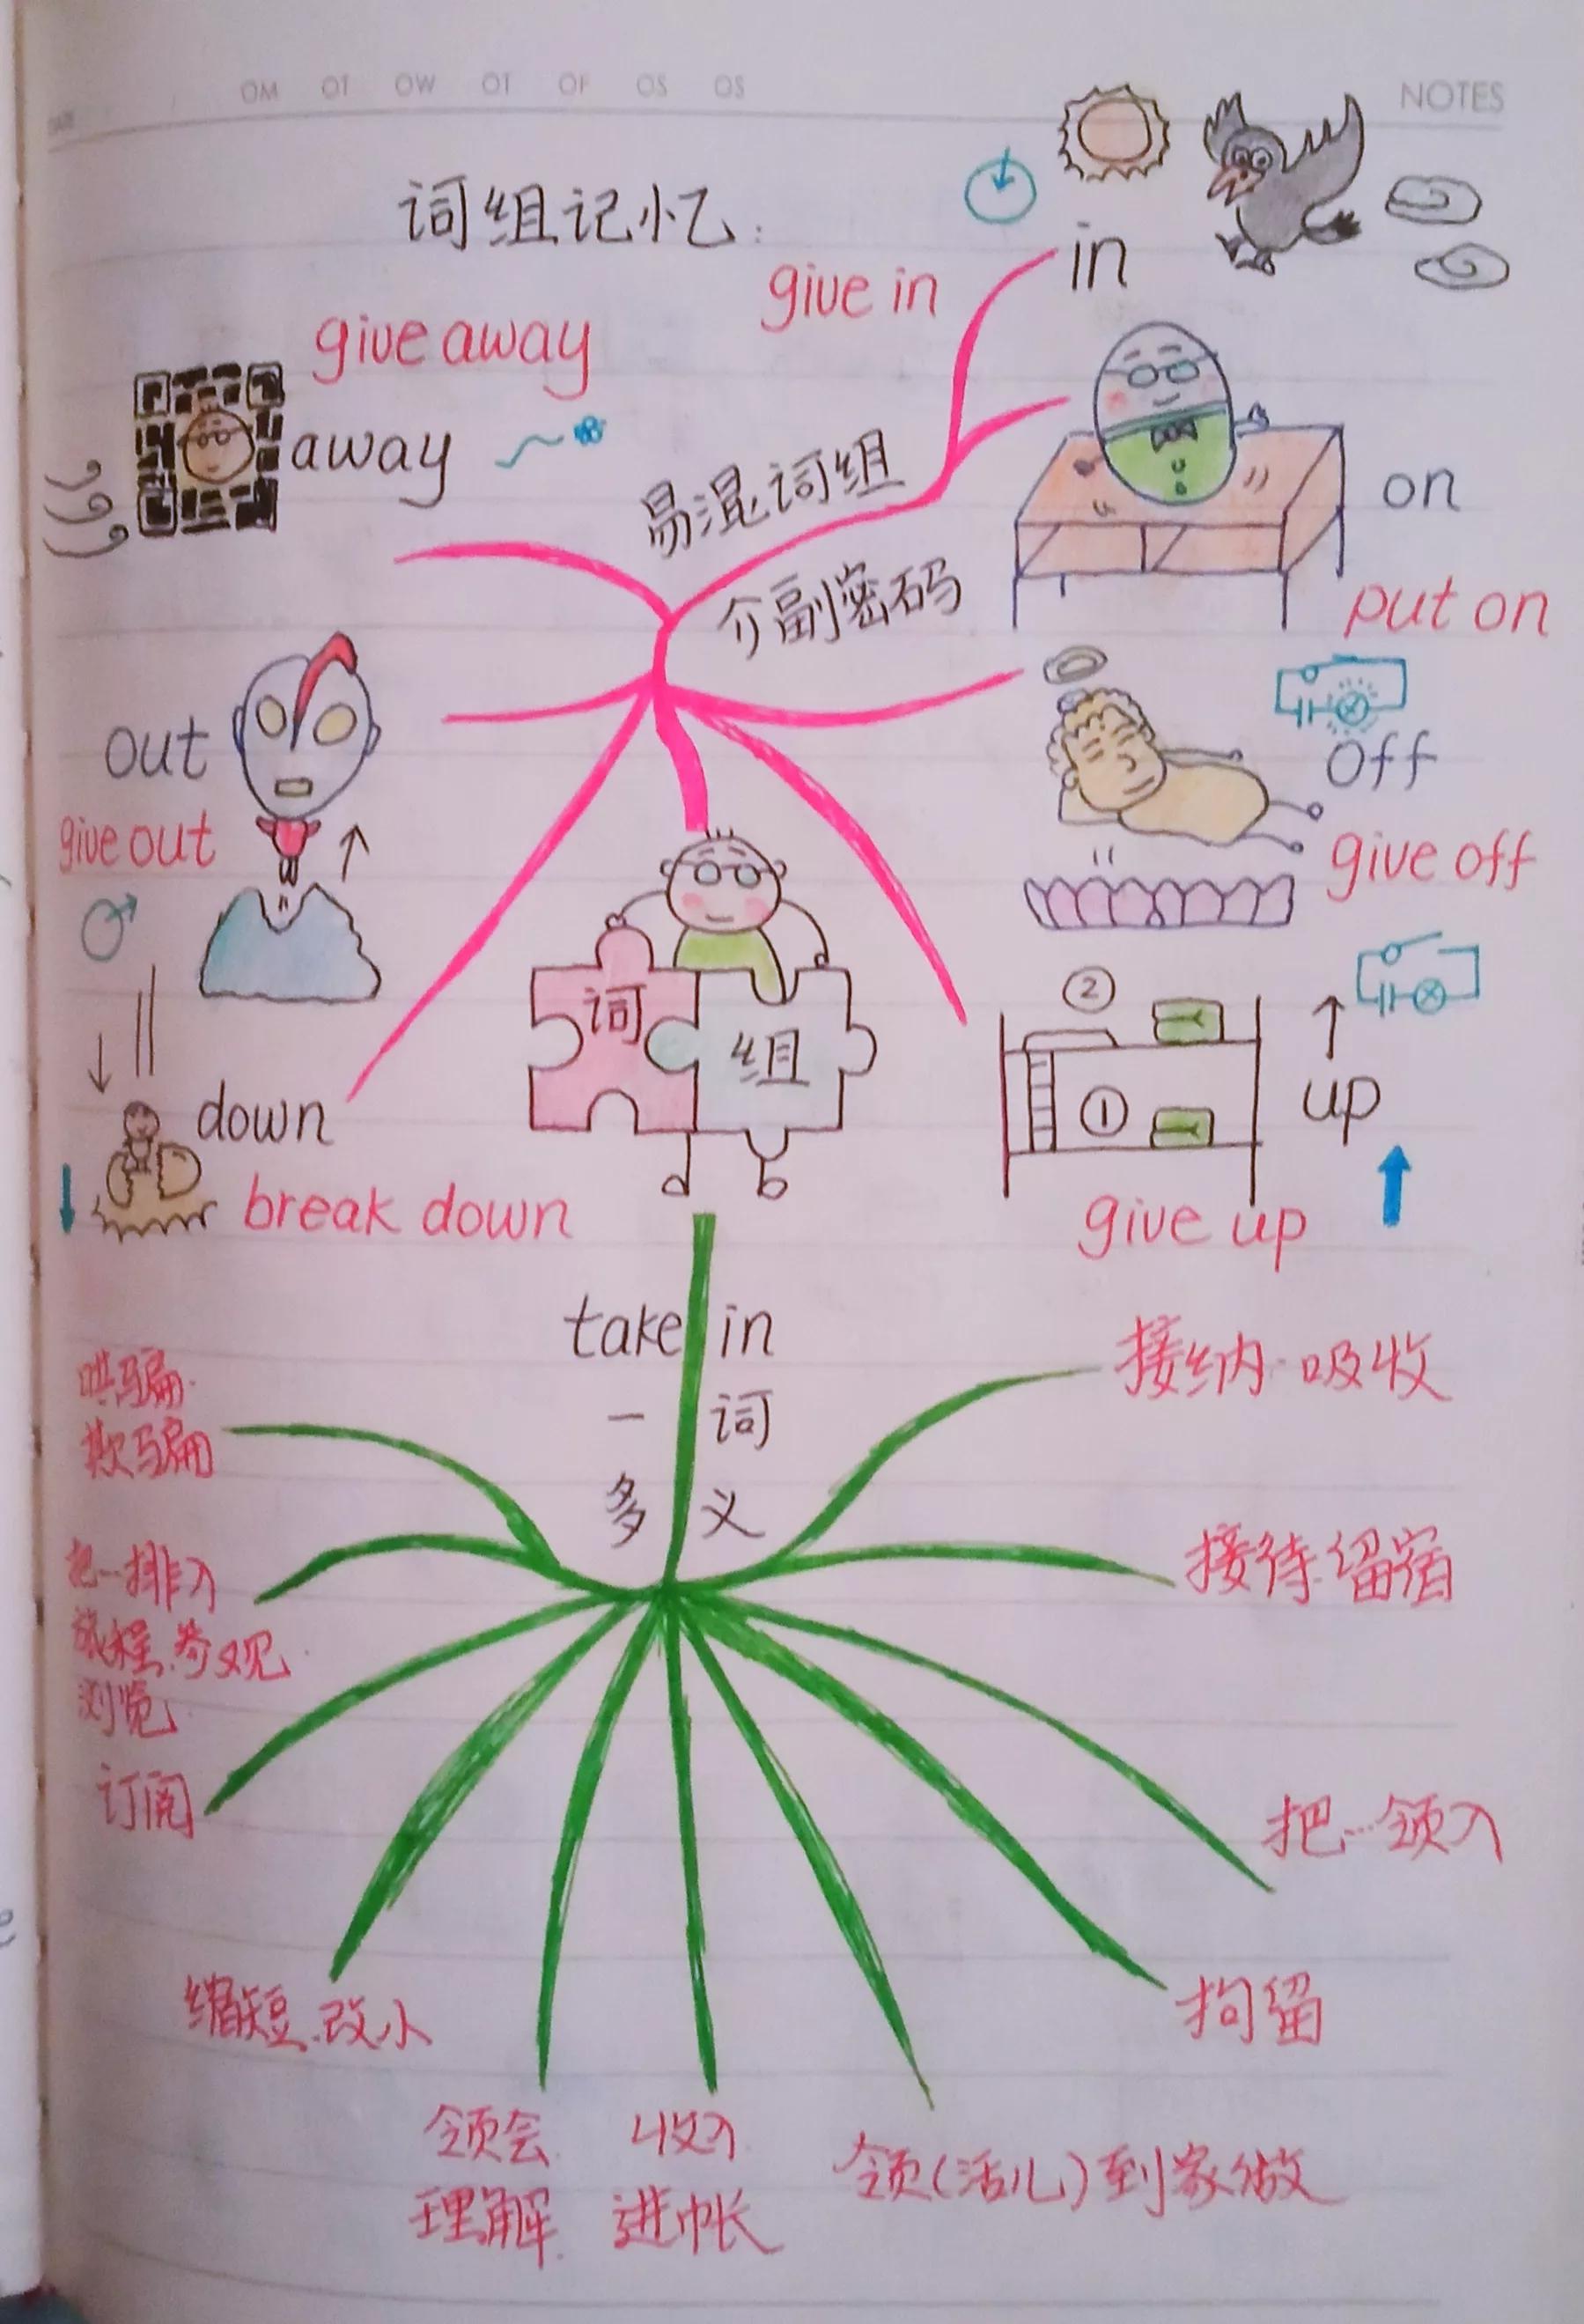 OM OT OW OT OF OS OS
NOTES
DATE
词组记忆:
give in
in
give away
away
易混词组
介副密码
on
put on
out
give out
off
give off
词
组
②
①
up
give up
down
break down
take in
一词
多义
接纳.吸收
接待.留宿
把…领入
拘留
领(活儿)到家做
收入
进帐
领会
理解
缩短.改小
订阅
把…排入
旅程.参观
浏览
哄骗.
欺骗